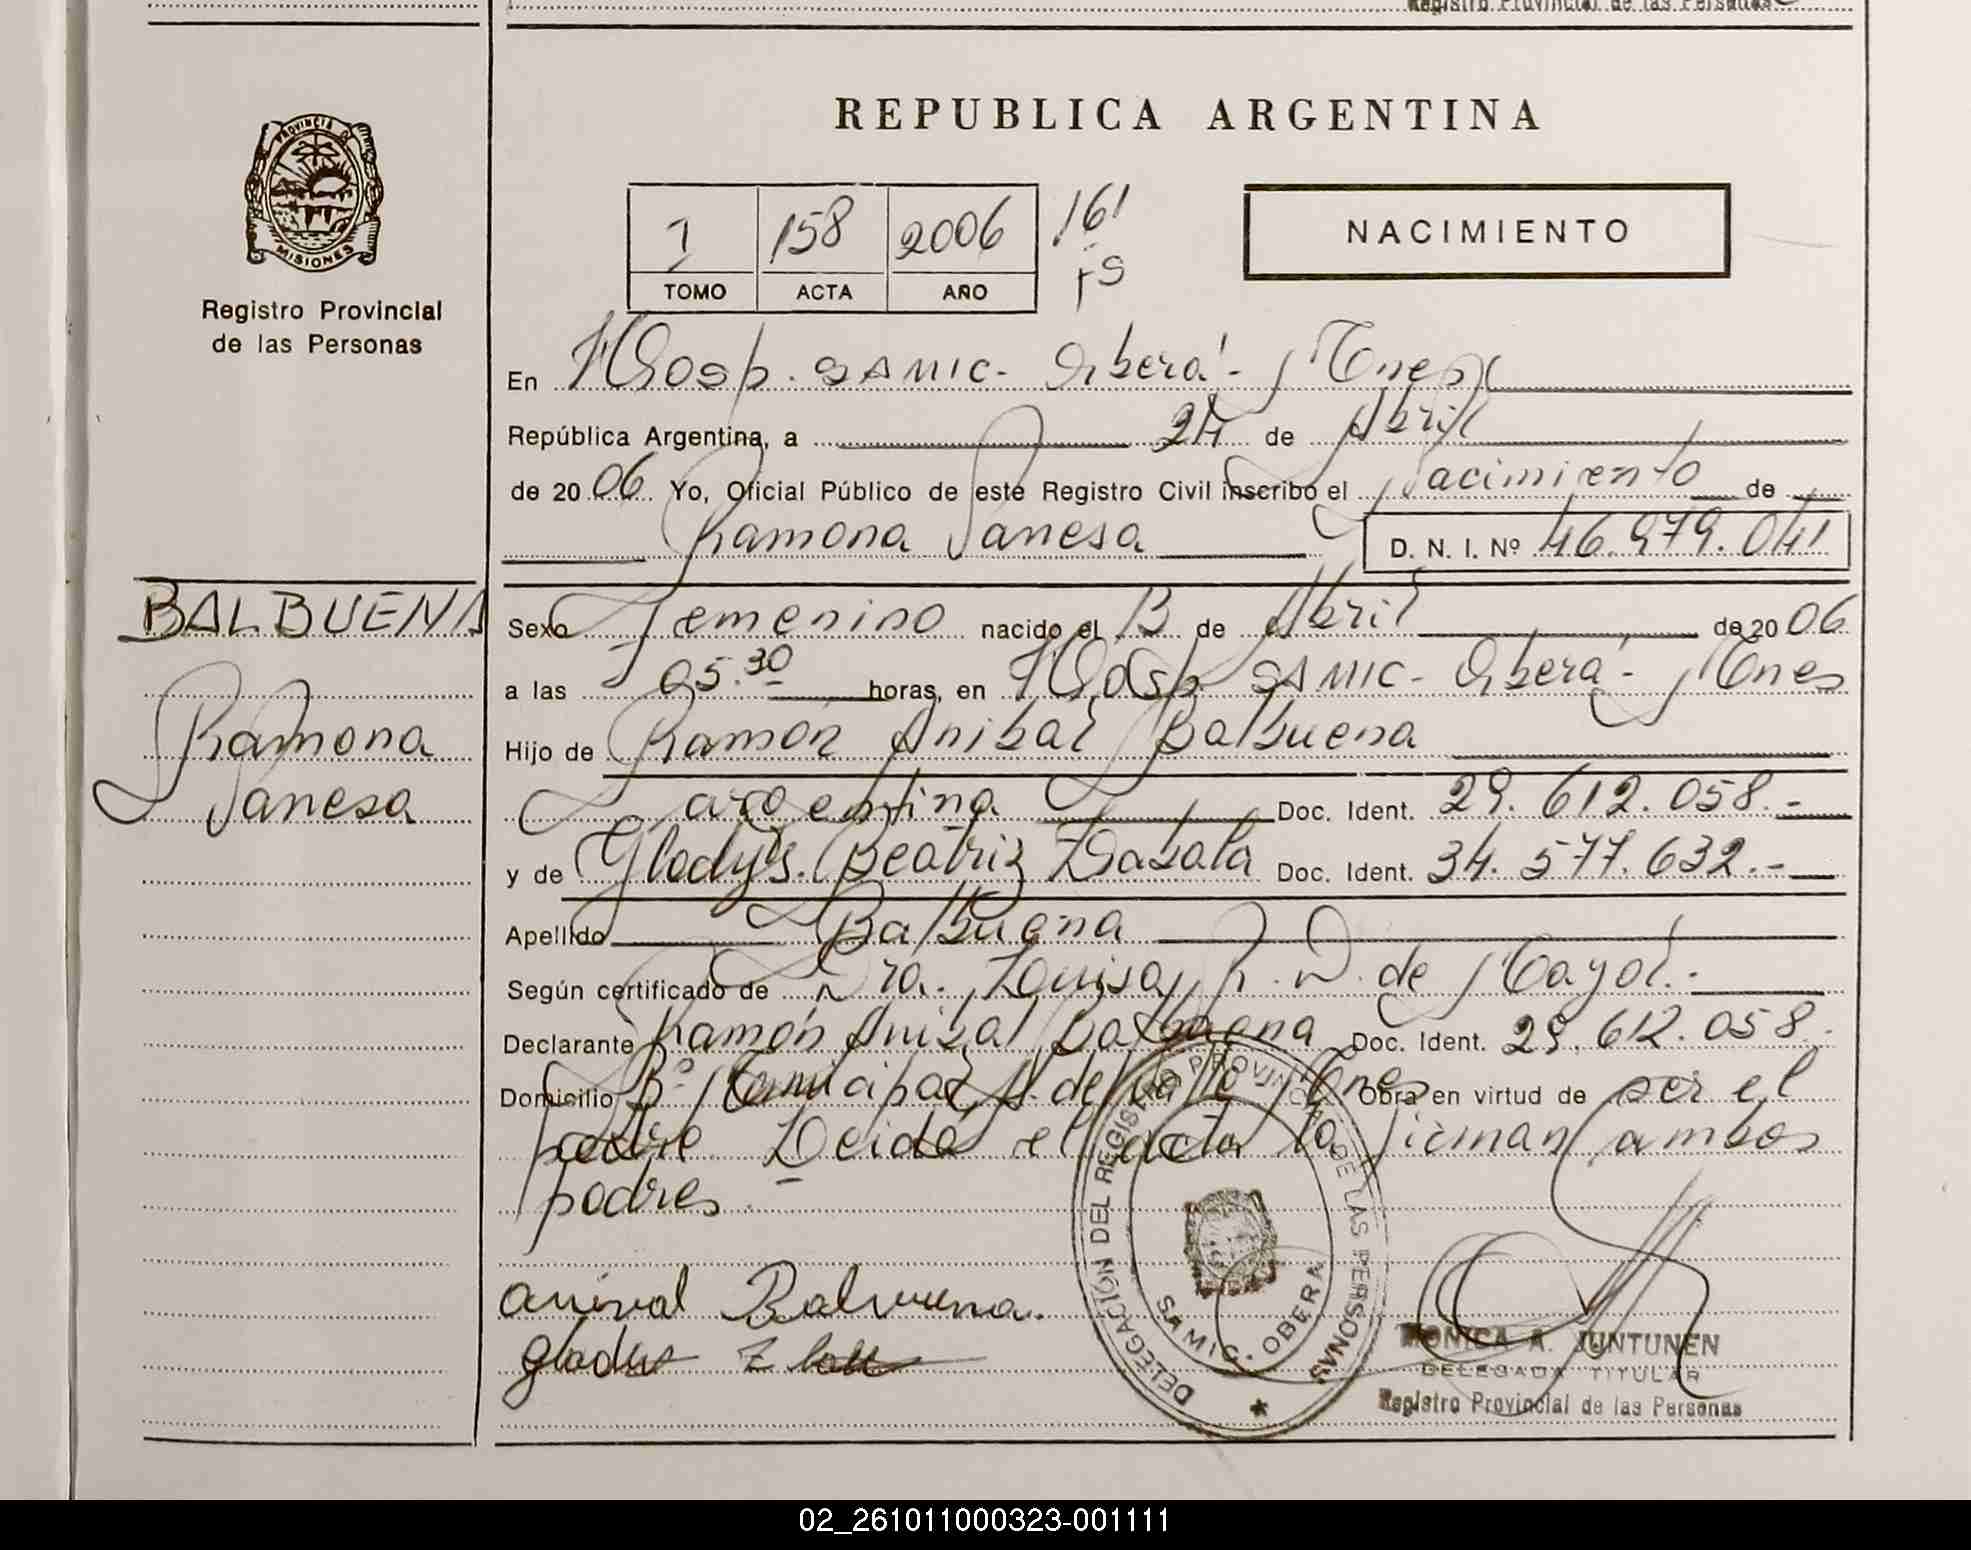 Registro Provincial de las Personas
REPUBLICA ARGENTINA
PROVINCIA D
MISIONES
Registro Provincial
de las Personas
1 158 2006 161
TOMO ACTA AÑO
NACIMIENTO
En Hosp. SAMIC - Oberá - Mnes
República Argentina, a 24 de Abril
de 2006 Yo, Oficial Público de este Registro Civil inscribo el Nacimiento de
Ramona Vanesa D. N. I. Nº 46.979.041
BALBUENA
Ramona
Vanesa
Sexo Femenino nacido el 13 de Abril de 2006
a las 05.30 horas, en Hosp SAMIC - Oberá - Mnes
Hijo de Ramón Anibal Balbuena
argentina Doc. Ident. 29.612.058.-
y de Gladys Beatriz Zabala Doc. Ident. 34.577.632.-
Apellido Balbuena
Según certificado de Dra. Louisa R. D. de Mayol.-
Declarante Ramón Anibal Balbuena Doc. Ident. 29.612.058.
Domicilio Bº Municipal A. del Valle Mnes Obra en virtud de ser el
padre Leida el acta la firman ambos
padres.-
anival Balvuena.
gladys
DELEGACIÓN DEL REGISTRO PROVINCIAL DE LAS PERSONAS
SAMIC. OBERA
MONICA A. JUNTUNEN
DELEGADA TITULAR
Registro Provincial de las Personas
02_261011000323-001111